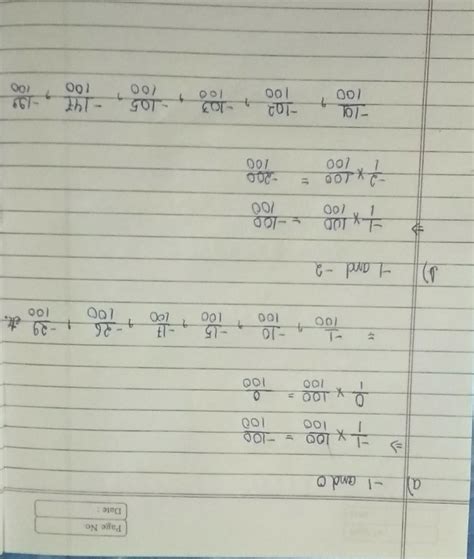 Page No.
Date :
a) -1 and 0
⇒ -1/1 × 100/100 = -100/100
0/1 × 100/100 = 0/100
= -1/100 , -10/100 , -15/100 , -17/100 , -26/100 , -29/100 etc.
b) -1 and -2
⇒ -1/1 × 100/100 = -100/100
-2/1 × 100/100 = -200/100
-101/100 , -102/100 , -103/100 , -105/100 , -147/100 , -199/100